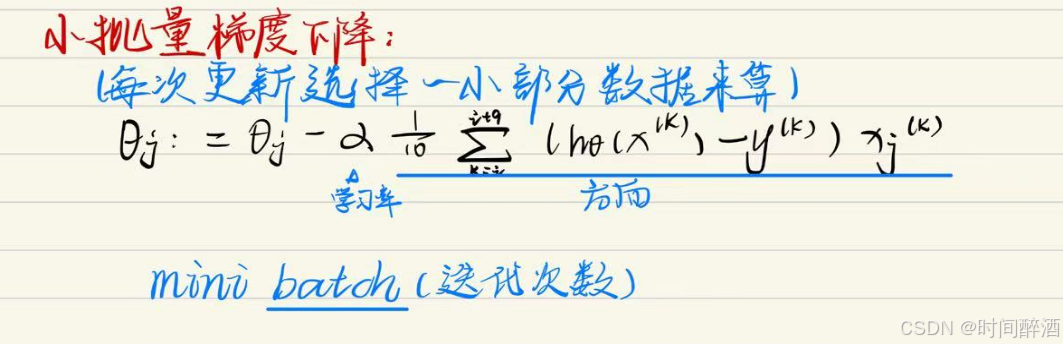 小批量梯度下降:
(每次更新选择一小部分数据来算)
θj := θj - α 1/10 ∑_{k=i}^{i+9} (hθ(x^(k)) - y^(k)) xj^(k)
学习率 方向
mini batch (迭代次数)
CSDN @时间醉酒